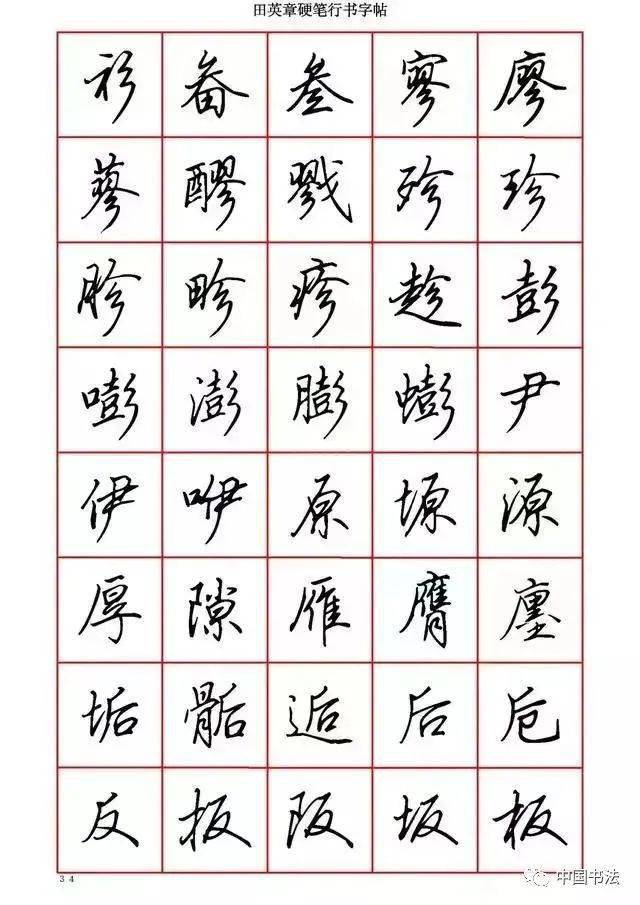 田英章硬笔行书字帖
衫畚叁寥廖
蓼醪戮殄珍
胗畛疹趁彭
嘭澎膨蟛尹
伊咿原塬源
厚隙雁膺廛
垢骺逅后卮
反扳阪坂板
34
中国书法